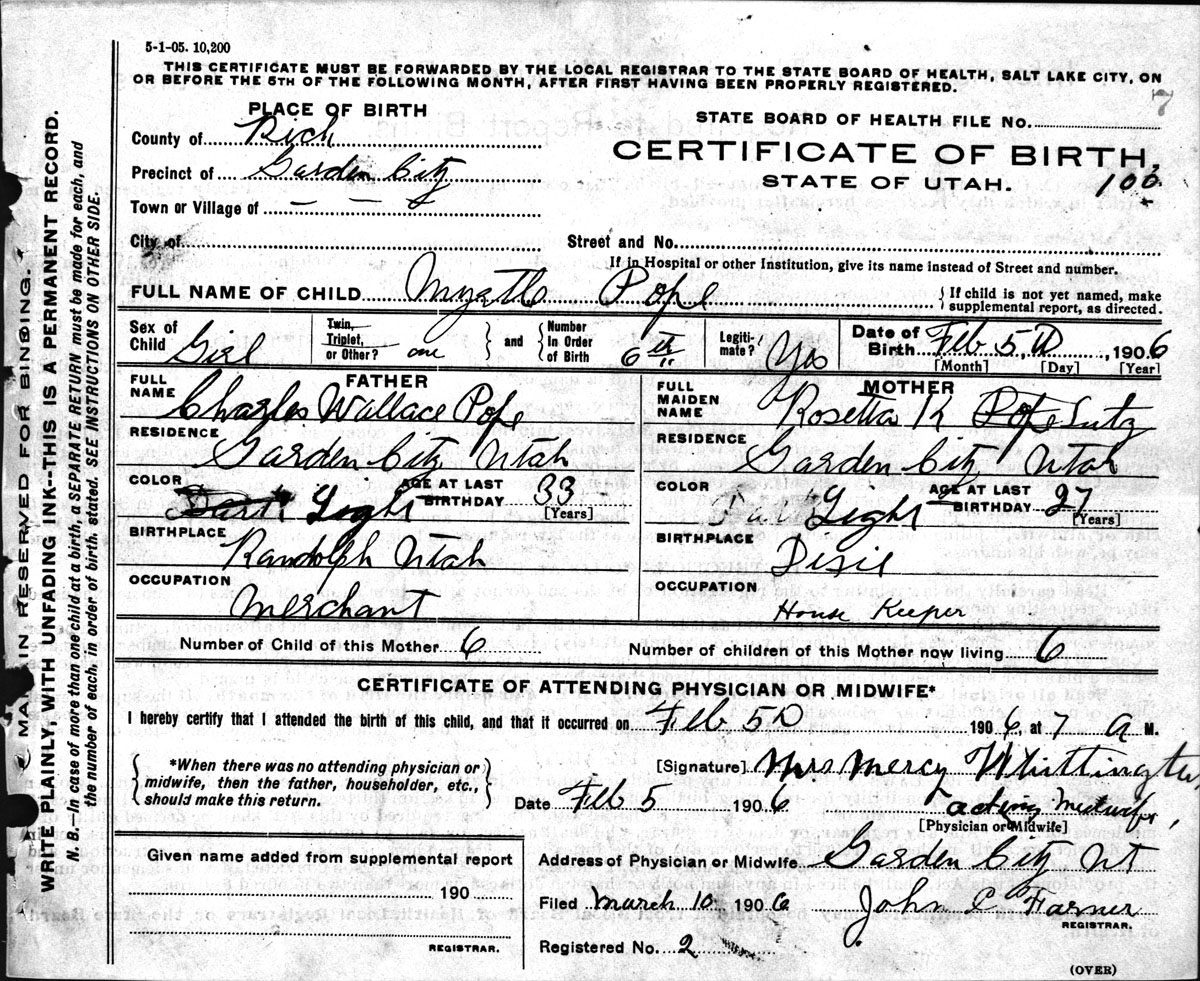 5-1-05. 10,200
THIS CERTIFICATE MUST BE FORWARDED BY THE LOCAL REGISTRAR TO THE STATE BOARD OF HEALTH, SALT LAKE CITY, ON
OR BEFORE THE 5TH OF THE FOLLOWING MONTH, AFTER FIRST HAVING BEEN PROPERLY REGISTERED.
7
PLACE OF BIRTH
County of Rich
Precinct of Garden City
Town or Village of — — —
City of
STATE BOARD OF HEALTH FILE No.
CERTIFICATE OF BIRTH,
STATE OF UTAH.
Street and No.
If in Hospital or other Institution, give its name instead of Street and number.
FULL NAME OF CHILD Myrtle Pope
{ If child is not yet named, make
supplemental report, as directed.
Sex of Child Girl
Twin, Triplet, or Other? one
and
Number In Order of Birth 6th
Legiti-mate? Yes
Date of Birth Feb 5, D, 1906
[Month] [Day] [Year]
FATHER
FULL NAME Charles Wallace Pope
RESIDENCE Garden City Utah
COLOR Dark Light
AGE AT LAST BIRTHDAY 33
[Years]
BIRTHPLACE Randolph Utah
OCCUPATION Merchant
MOTHER
FULL MAIDEN NAME Rosetta K Pope Lutz
RESIDENCE Garden City Utah
COLOR Light
AGE AT LAST BIRTHDAY 27
[Years]
BIRTHPLACE Dixie
OCCUPATION House Keeper
Number of Child of this Mother 6
Number of children of this Mother now living 6
CERTIFICATE OF ATTENDING PHYSICIAN OR MIDWIFE*
I hereby certify that I attended the birth of this child, and that it occurred on Feb 5 D 1906, at 7 a M.
{ *When there was no attending physician or
midwife, then the father, householder, etc.,
should make this return. }
[Signature] Mrs Mercy Whittington
Date Feb 5 1906
acting Midwife,
[Physician or Midwife]
Given name added from supplemental report
190
REGISTRAR.
Address of Physician or Midwife Garden City Ut
Filed March 10 1906
John C Farner
REGISTRAR.
Registered No. 2
(OVER)
MARGIN RESERVED FOR BINDING.
WRITE PLAINLY, WITH UNFADING INK--THIS IS A PERMANENT RECORD.
N. B.--In case of more than one child at a birth, a SEPARATE RETURN must be made for each, and
the number of each, in order of birth, stated. SEE INSTRUCTIONS ON OTHER SIDE.